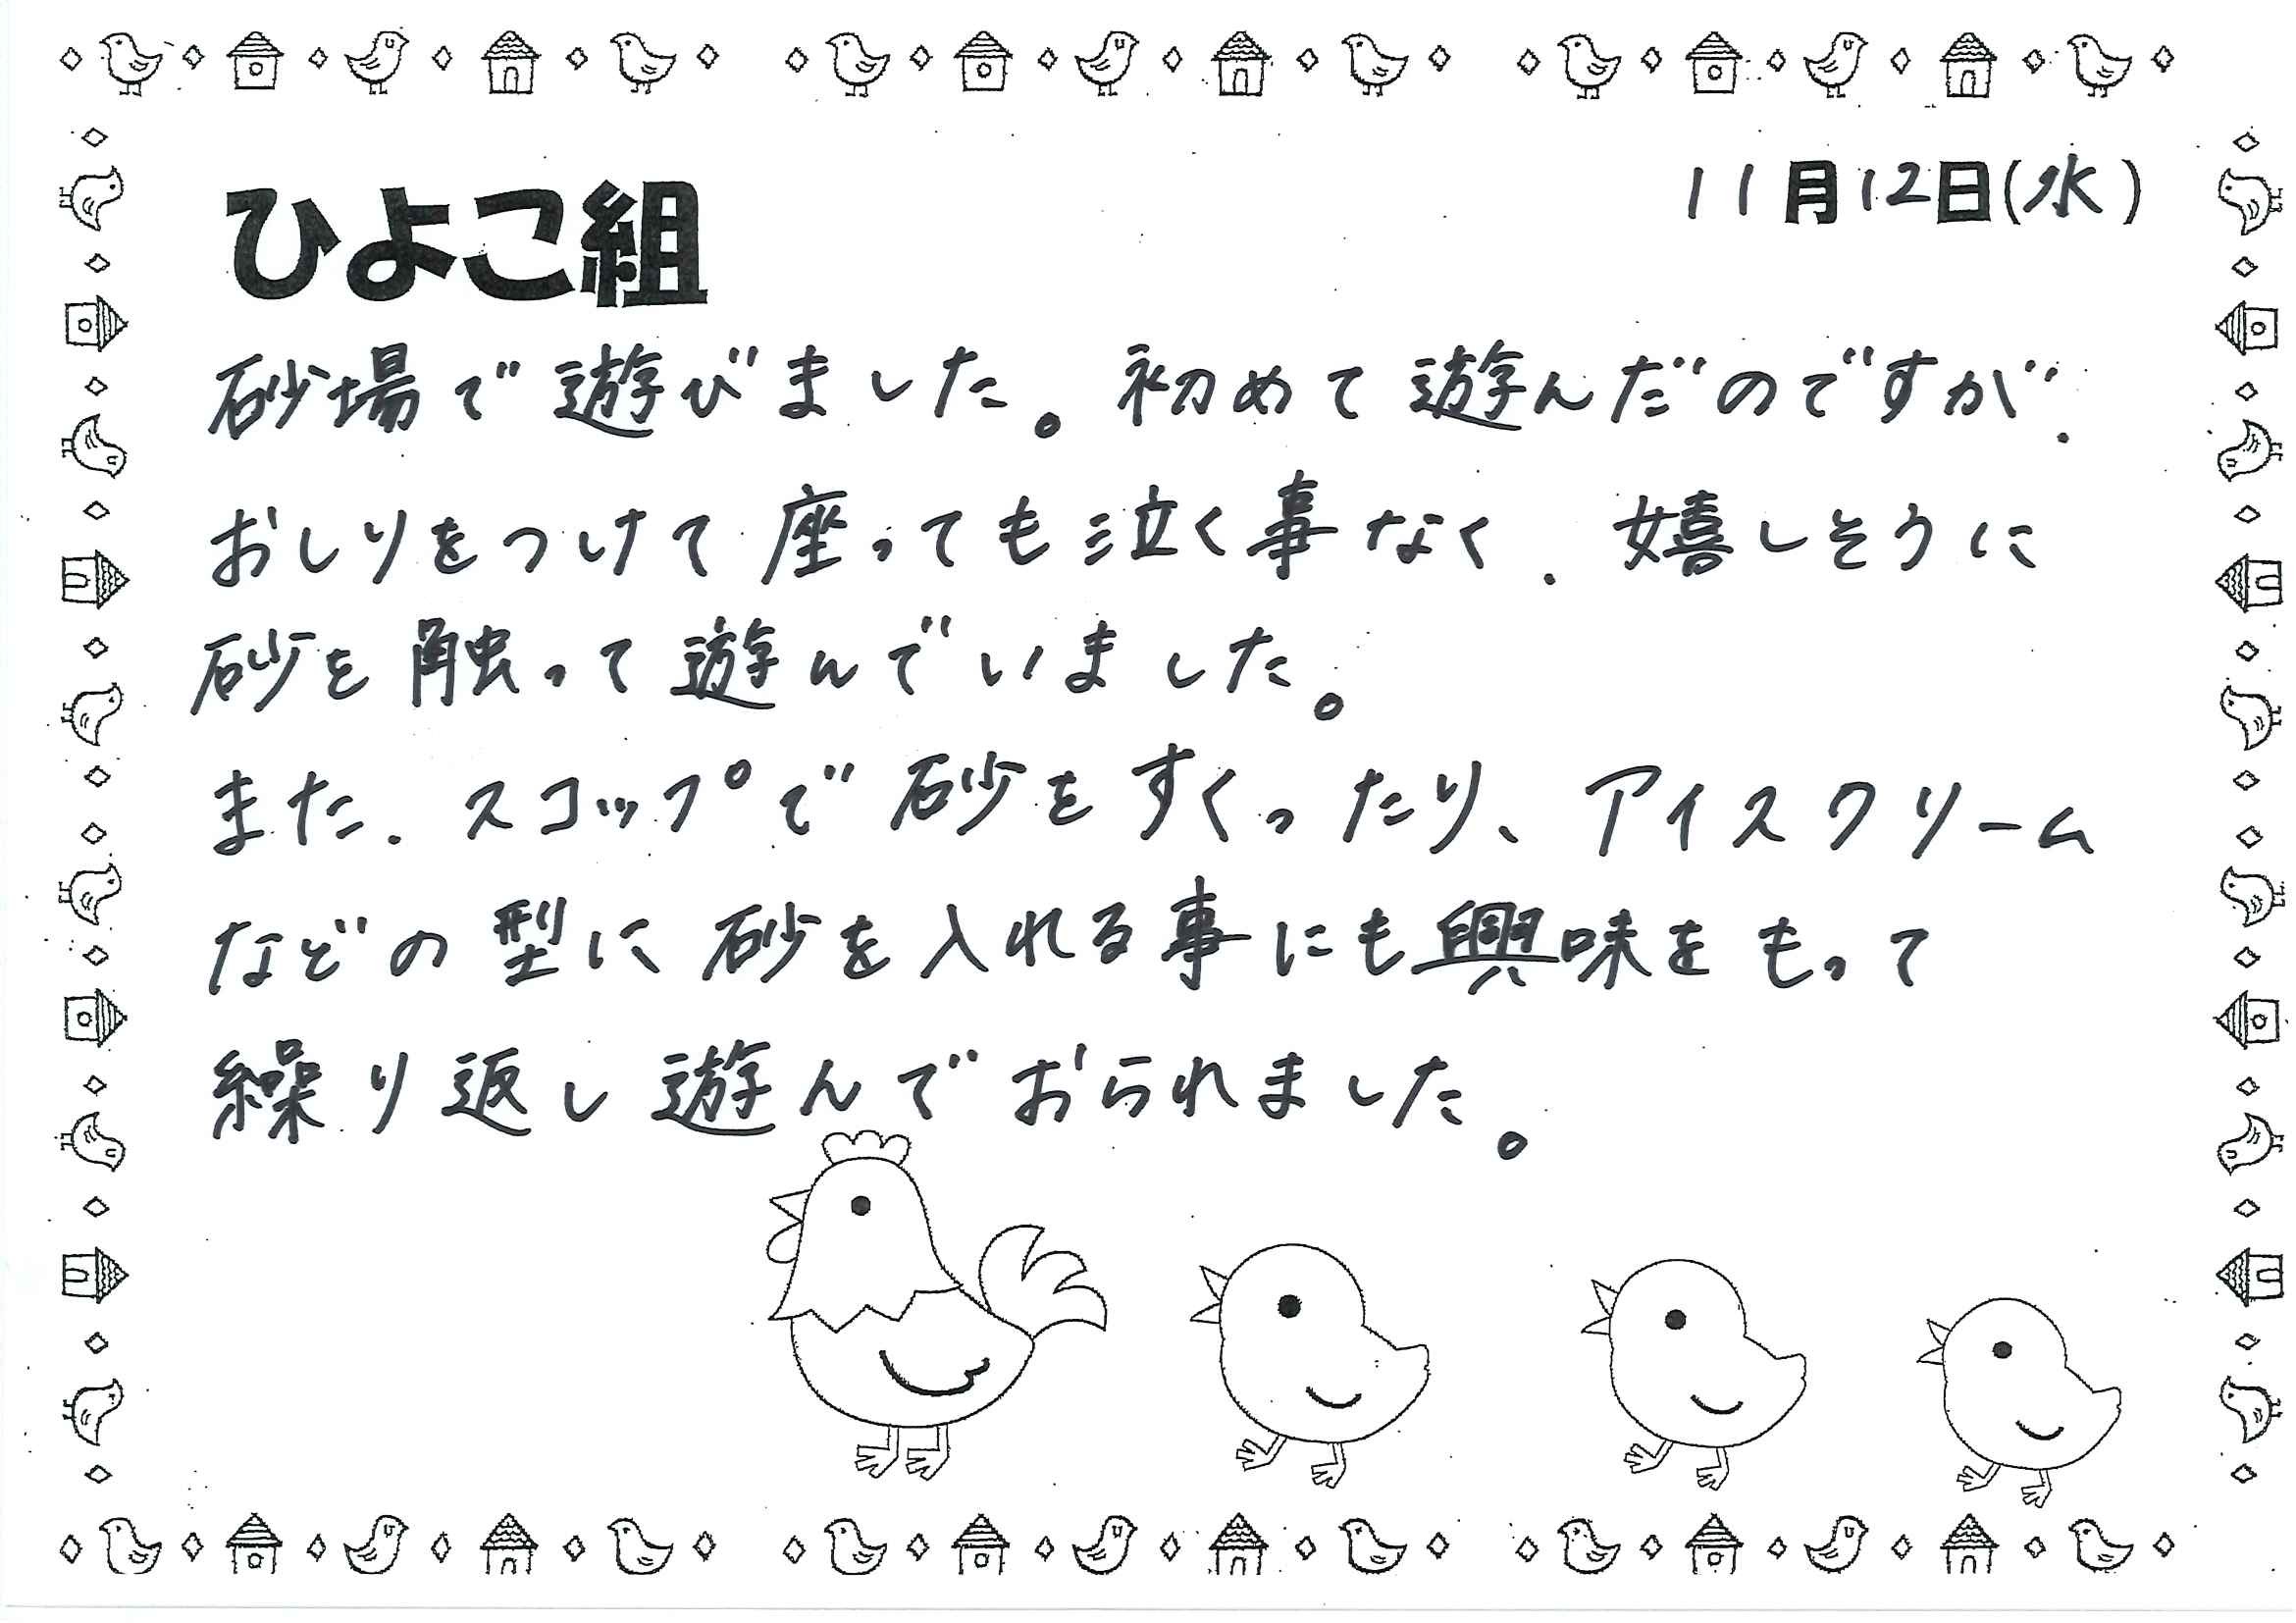 ひよこ組
11月12日(水)
砂場で遊びました。初めて遊んだのですが、
おしりをつけて座っても泣く事なく、嬉しそうに
砂を触って遊んでいました。
また、スコップで砂をすくったり、アイスクリーム
などの型に砂を入れる事にも興味をもって
繰り返し遊んでおられました。